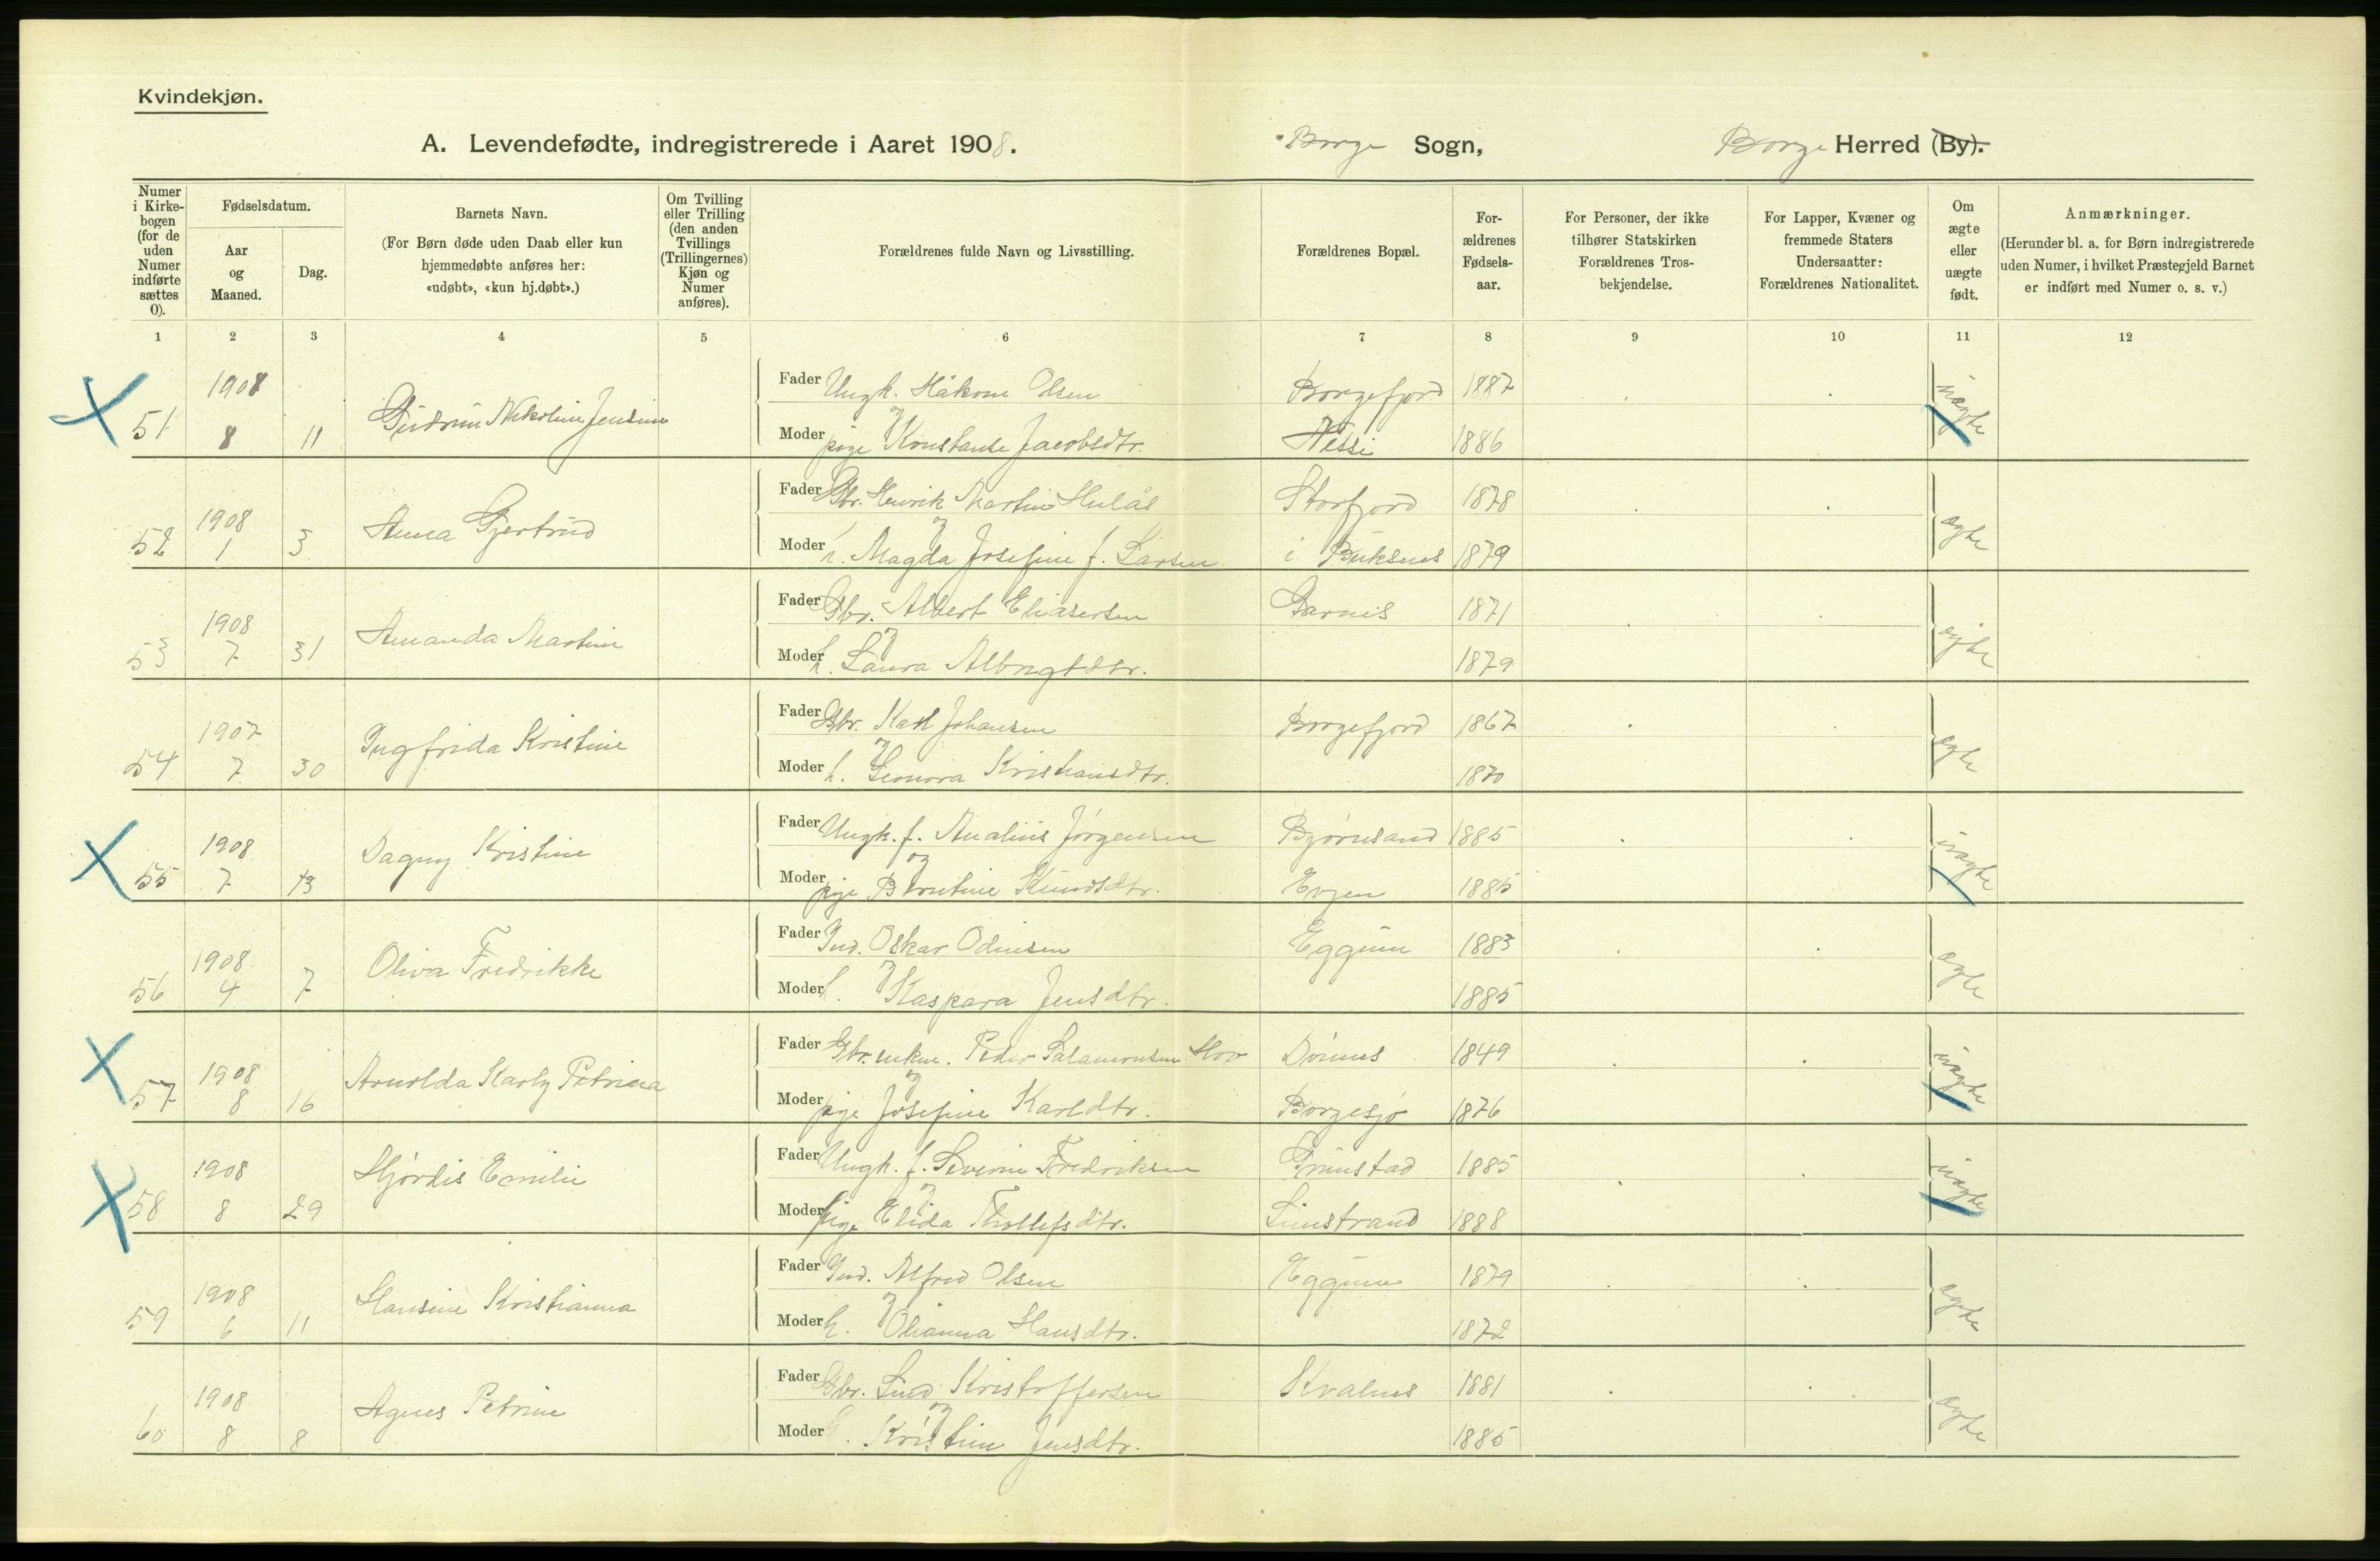 Kvindekjøn.
A. Levendefødte, indregistrerede i Aaret 1908. Borge Sogn, Borge Herred (By).
Numer i Kirkebogen (for de uden Numer indførte sættes 0).
Fødselsdatum.
Aar og Maaned.
Dag.
Barnets Navn.
(For Børn døde uden Daab eller kun hjemmedøbte anføres her: «udøbt», «kun hj.døbt».)
Om Tvilling eller Trilling (den anden Tvillings (Trillingernes) Kjøn og Numer anføres).
Forældrenes fulde Navn og Livsstilling.
Forældrenes Bopæl.
Forældrenes Fødselsaar.
For Personer, der ikke tilhører Statskirken Forældrenes Trosbekjendelse.
For Lapper, Kvæner og fremmede Staters Undersaatter: Forældrenes Nationalitet.
Om ægte eller uægte født.
Anmærkninger.
(Herunder bl. a. for Børn indregistrerede uden Numer, i hvilket Præstegjeld Barnet er indført med Numer o. s. v.)
1 2 3 4 5 6 7 8 9 10 11 12
1908 Fader Ungk. Håkon Olsen Borgefjord 1887 uægte
51 8 11 Gudrun Nikoline Jensine og
Moder pige Konstanse Jacobsdtr. 1886
Fader Gbr. Henrik Martin Storfjord 1878
52 1908 1 3 Anna Gjertrud og ægte
Moder h. Magda Josefine f. Larsen i Buksnes 1879
Fader Gbr. Albert Eliasersen 1871
53 1908 7 31 Amanda Martine og ægte
Moder h. Laura Albrigtdtr. 1879
Fader Gbr. Karl Johansen Borgefjord 1867
54 1907 7 30 Ingfrida Kristine og ægte
Moder h. Leonora Kristiansdtr. 1870
Fader Ungk. f. Analius Jørgensen Bjørnsand 1885
55 1908 7 13 Dagny Kristine og uægte
Moder pige Knudsdtr. Evjen 1885
Fader Ind. Oskar Odinsen Eggum 1883
56 1908 4 7 Oliva Fredrikke og ægte
Moder h. Kaspara Jensdtr. 1885
Fader Gbr. enkm. Peder Salamonsen Hov Dønnes 1849
57 1908 8 16 Arnolda Karly Petrina og uægte
Moder pige Josefine Karldtr. Borgesjø 1876
Fader Ungk. f. Severin Fredriksen Grimstad 1885
58 1908 8 29 Hjørdis Emilie og uægte
Moder pige Elida Thollefsdtr. Limstrand 1888
Fader Ind. Alfred Olsen Eggum 1879
59 1908 6 11 Hansine Kristianna og ægte
Moder h. Olianna Hansdtr. 1872
Fader Gbr. Kristoffersen Kvalnes 1881
60 1908 8 8 Agnes Petrine og ægte
Moder h. Kristine Jensdtr. 1885